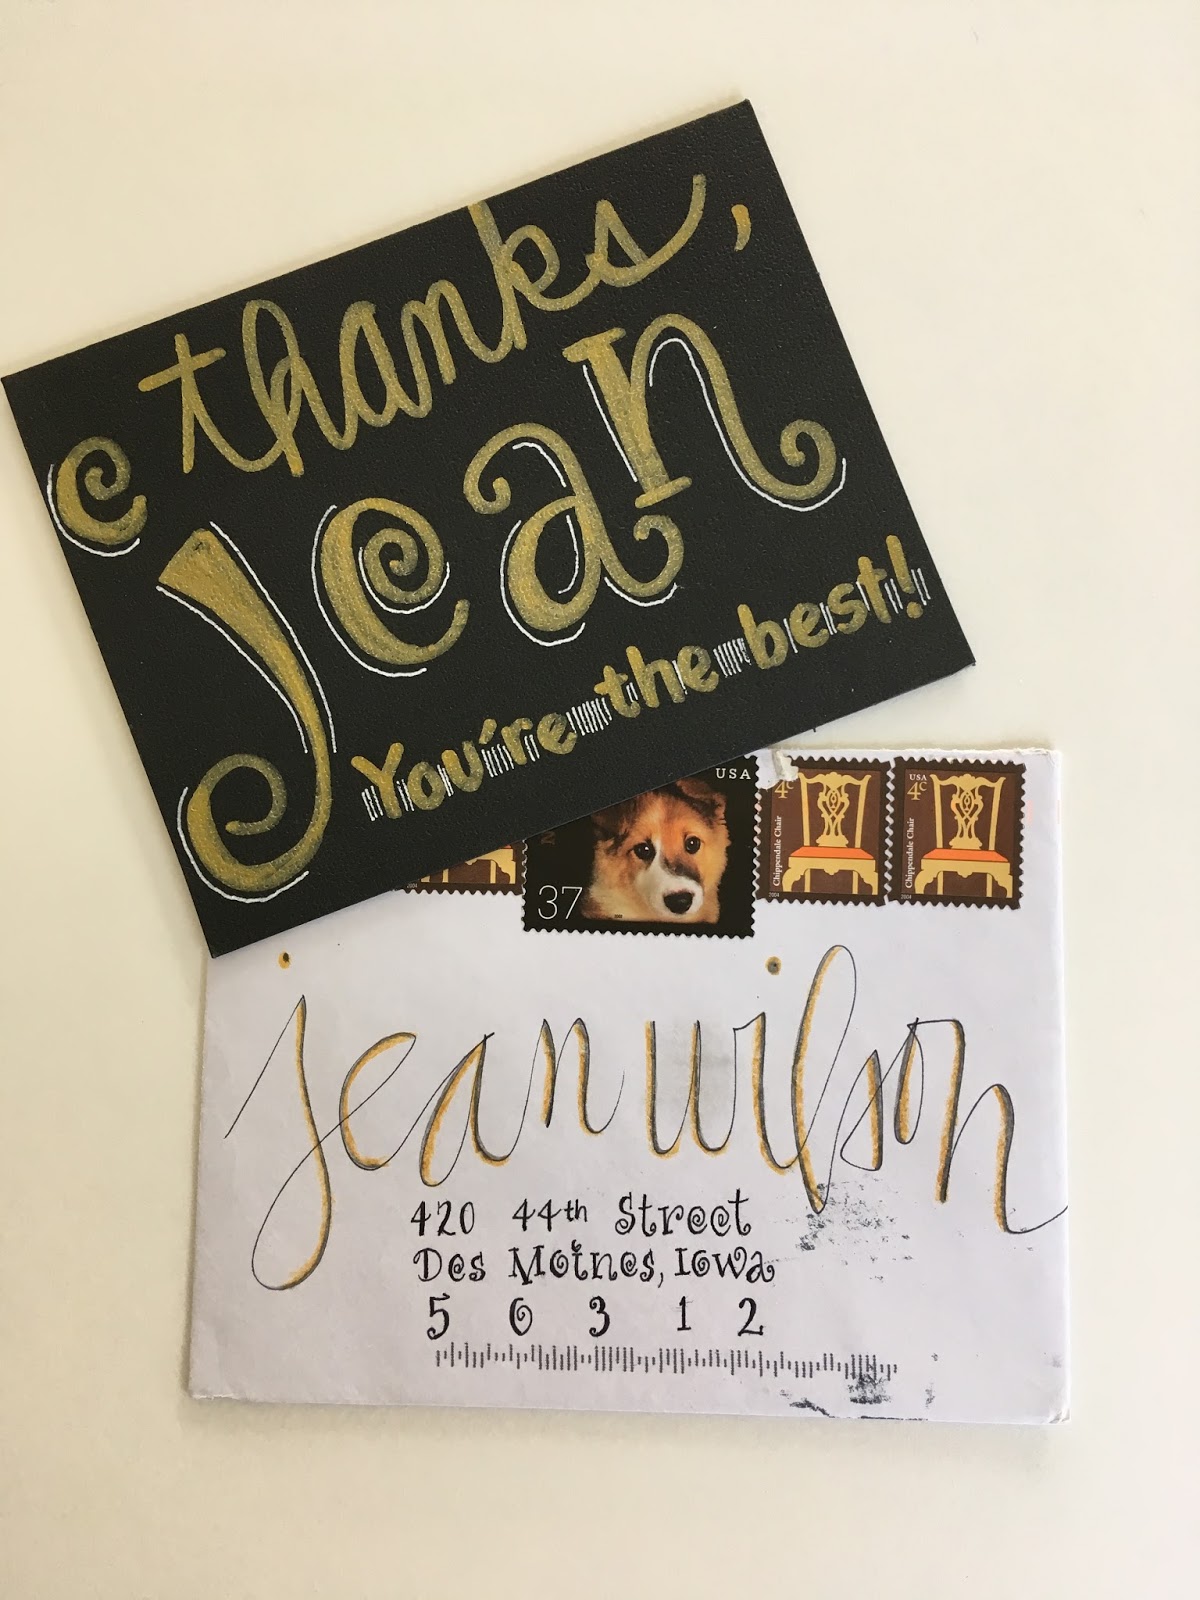 thanks,
Jean
You're the best!
USA
37
4c
Chippendale Chair
2004
USA
4c
Chippendale Chair
2004
jean wilson
420 44th Street
Des Moines, Iowa
5 0 3 1 2